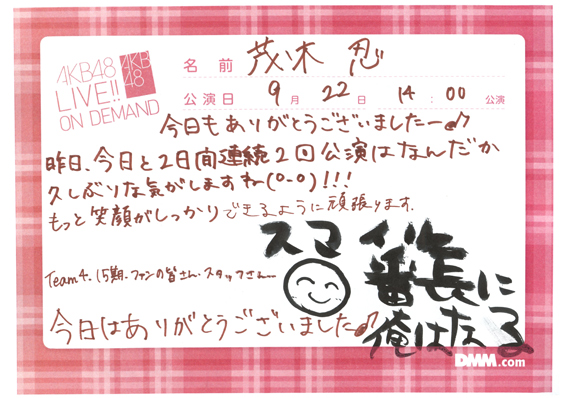 AKB48
LIVE!!
ON DEMAND
AKB
48
名前 茂木忍
公演日 9月22日 14:00 公演
今日もありがとうございましたー♪
昨日、今日と2日間連続2回公演はなんだか
久しぶりな気がしますね(0-0)!!!
もっと笑顔がしっかりできるように頑張ります。
スマイル
番長に
俺はなる
Team4、15期、ファンの皆さん、スタッフさん…
今日はありがとうございました♪
DMM.com